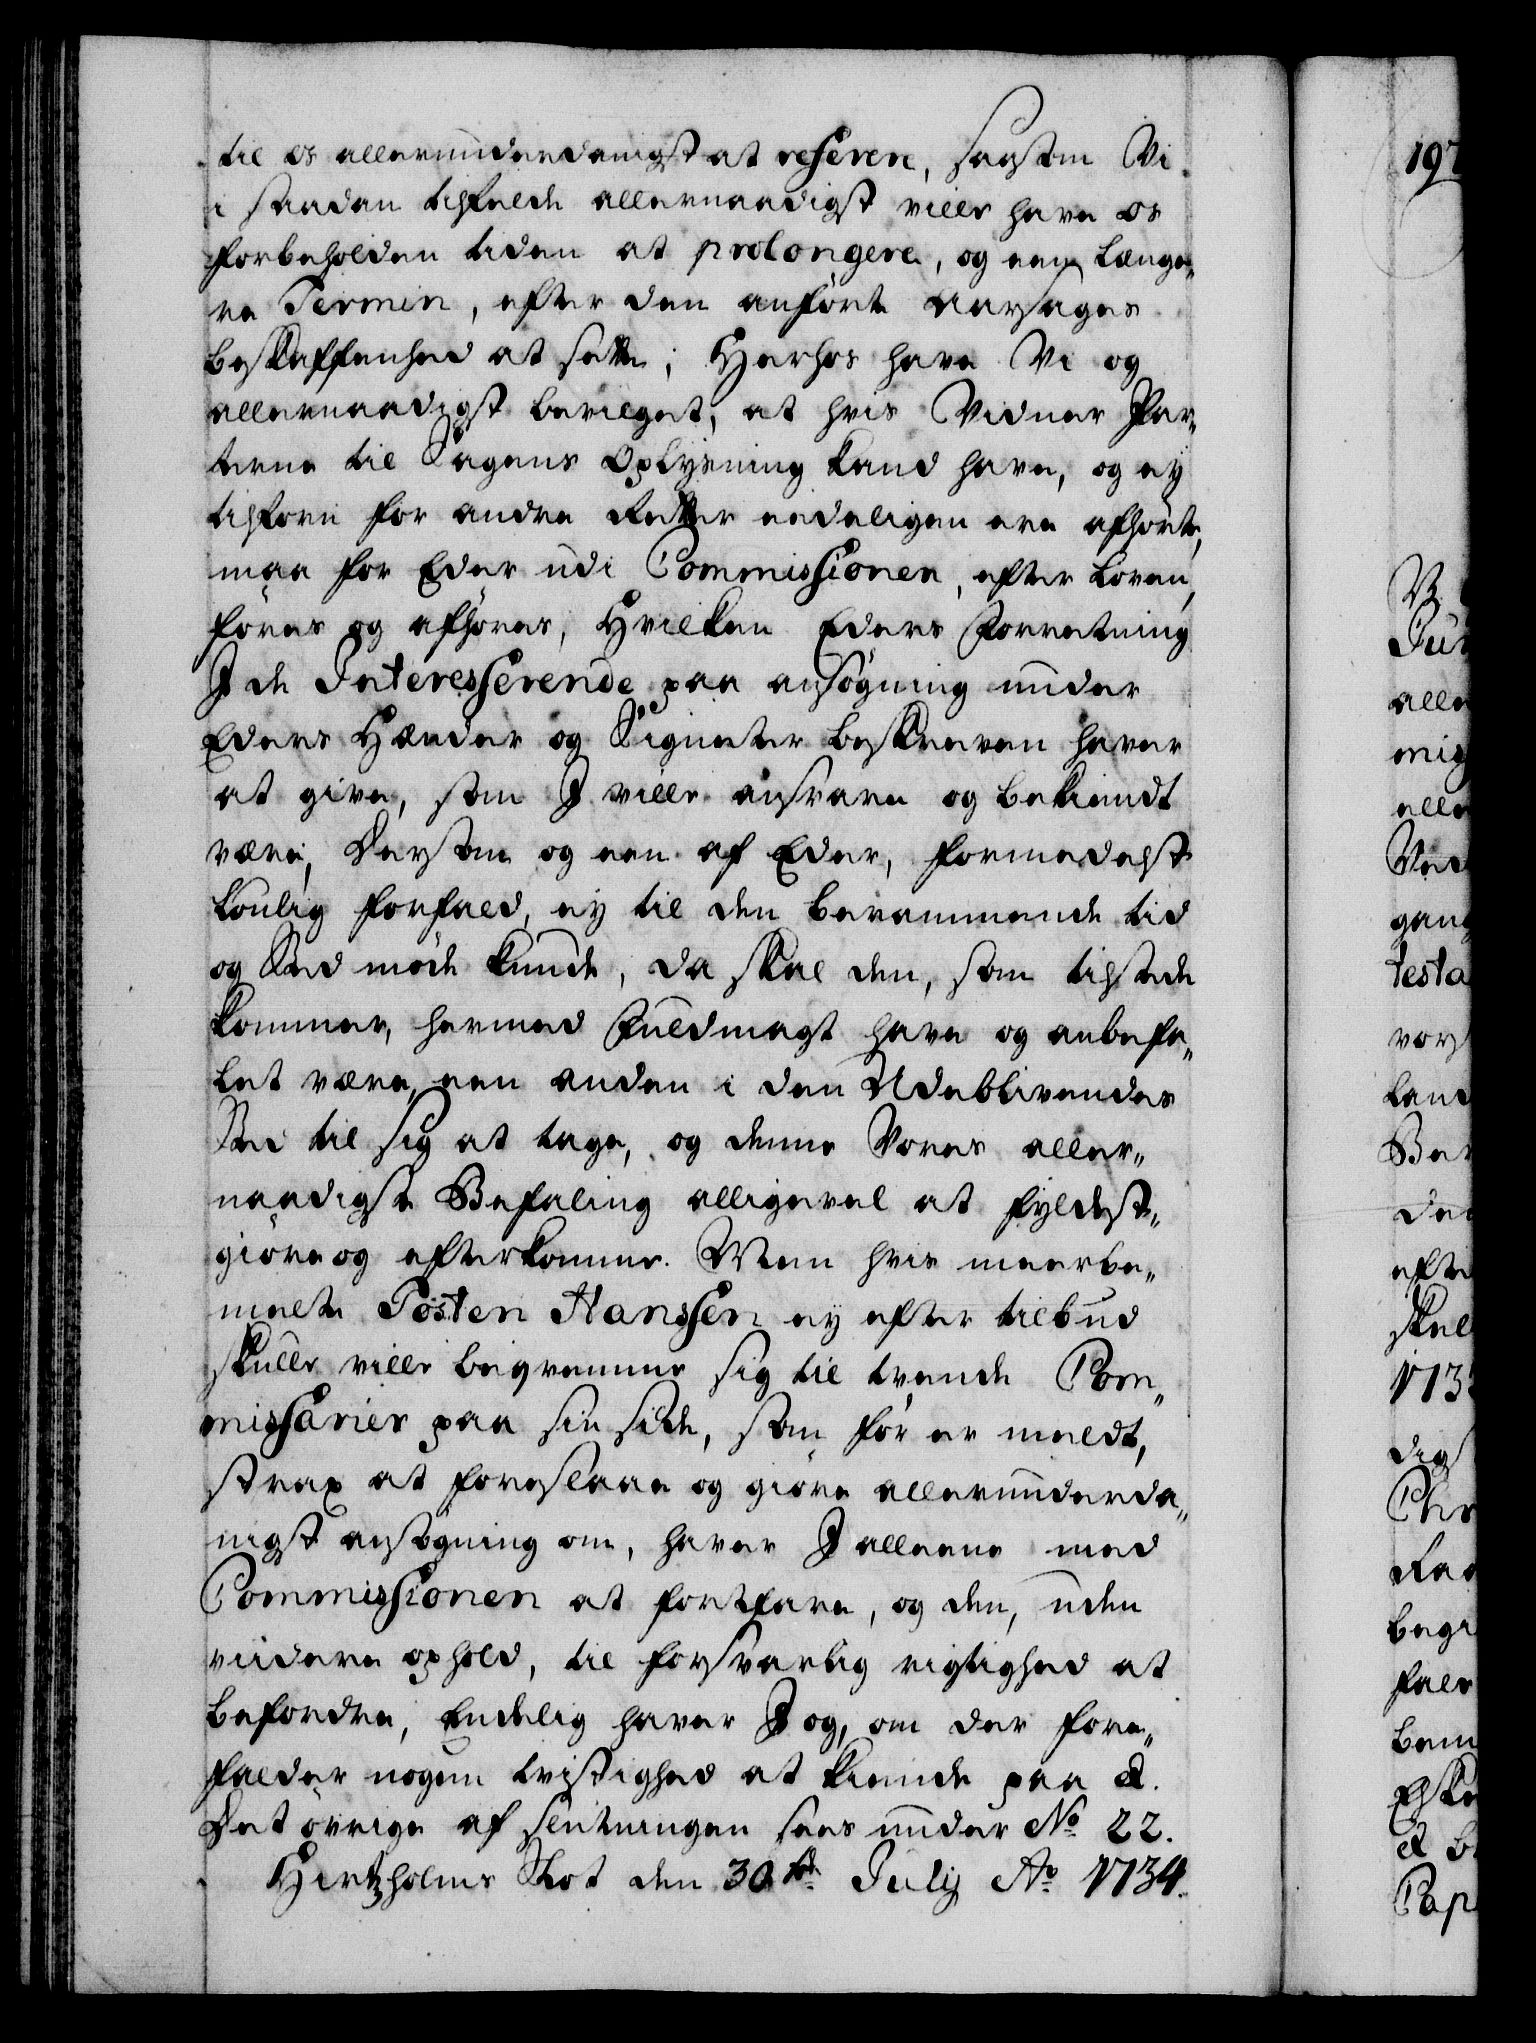 til os allerunderdanigst at referere, saasom Vi
i saadan tilfelde allernaadigst ville have os
forbeholden tiden at prolongere, og een længe„
re Termin, efter den anførte Aarsages
beskaffenhed at sette; Herhos have Vi og
allernaadigst bevilget, at hvis Vidner Par„
terne til Sagens Oplysning kand have, og ey
tilforn for andre Retter eedeligen ere afhørte,
maa for Eder udi Commissionen, efter loven,
føres og afhøres, Hvilken Eders Forretning
I de Interesserende paa ansøgning under
Eders Hænder og Signeter beskreven haver
at give, som I ville ansvare og bekiendt
være, Dersom og een af Eder, formedelst
lovlig forfald, ey til den berammende tid
og Sted møde kunde, da skal den, som tilstede
kommer, hermed Fuldmagt have og anbefa„
let være, een anden i den Udeblivendes
Sted til sig at tage, og denne Vores aller„
naadigste Befaling alligevel at fyldest„
giøre og efterkomme. Men hvis meerbe„
melte Tosten Hanssen ey efter tilbud
skulle ville beqvemme sig til tvende Com„
missarier paa sin side, som før er meldt,
strax at foreslaae og giøre allerunderda„
nigst ansøgning om, haver I alleene med
Commissionen at fortfare, og den, uden
viidere ophold, til forsvarlig rigtighed at
befordre, Endelig haver I og, om der fore„
falder nogen tvistighed at kiende paa &.
Det øvrige af slutningen sees under No 22.
Hirtzholms Slot den 30te July Ao 1734.
197
alle
mig
alle
gang
testa
vors
land
Ber
efte
skul
173
dig
Chr
begi
fale
bem
& b
Pap